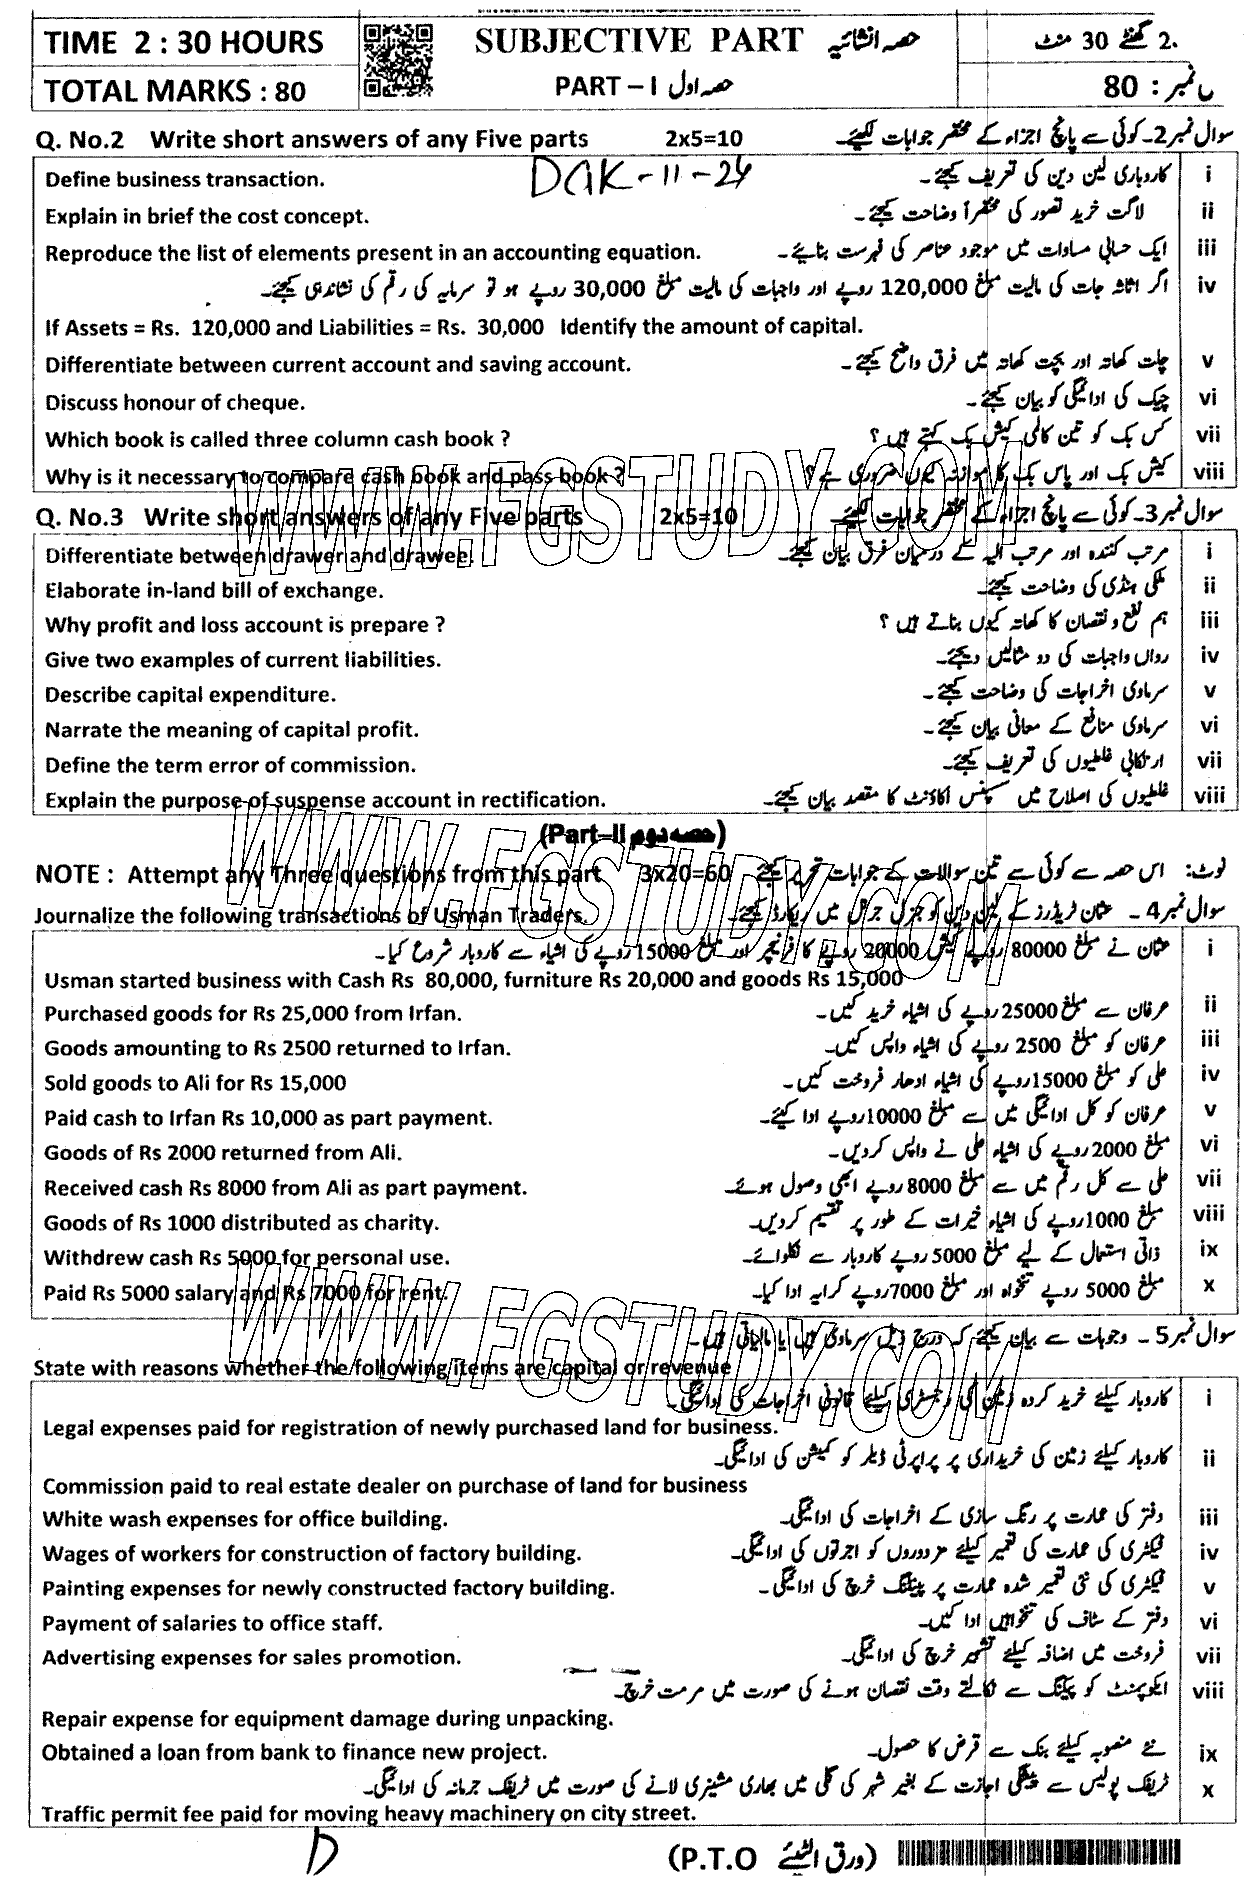 TIME 2 : 30 HOURS
SUBJECTIVE PART حصہ انشائیہ
2 گھنٹے 30 منٹ
TOTAL MARKS : 80
PART – I حصہ اول
نمبر : 80
Q. No.2 Write short answers of any Five parts 2x5=10 سوال نمبر 2۔ کوئی سے پانچ اجزاء کے مختصر جوابات لکھیئے۔
DGK-11-24
Define business transaction. کاروباری لین دین کی تعریف کیجئے۔ i
Explain in brief the cost concept. لاگت خرید تصور کی مختصراً وضاحت کیجئے۔ ii
Reproduce the list of elements present in an accounting equation. ایک حسابی مساوات میں موجود عناصر کی فہرست بنائیے۔ iii
اگر اثاثہ جات کی مالیت مبلغ 120,000 روپے اور واجبات کی مالیت مبلغ 30,000 روپے ہو تو سرمایہ کی رقم کی نشاندہی کیجئے۔ iv
If Assets = Rs. 120,000 and Liabilities = Rs. 30,000 Identify the amount of capital.
Differentiate between current account and saving account. چلت کھاتہ اور بچت کھاتہ میں فرق واضح کیجئے۔ v
Discuss honour of cheque. چیک کی ادائیگی کو بیان کیجئے۔ vi
Which book is called three column cash book ? کس بک کو تین کالمی کیش بک کہتے ہیں ؟ vii
Why is it necessary to compare cash book and pass book ? کیش بک اور پاس بک کا موازنہ کیوں ضروری ہے ؟ viii
WWW.FGSTUDY.COM
Q. No.3 Write short answers of any Five parts 2x5=10 سوال نمبر 3۔ کوئی سے پانچ اجزاء کے مختصر جوابات لکھیئے۔
Differentiate between drawer and drawee. مرتب کنندہ اور مرتب الیہ کے درمیان فرق بیان کیجئے۔ i
Elaborate in-land bill of exchange. ملکی ہنڈی کی وضاحت کیجئے۔ ii
Why profit and loss account is prepare ? ہم نفع و نقصان کا کھاتہ کیوں بناتے ہیں ؟ iii
Give two examples of current liabilities. رواں واجبات کی دو مثالیں دیجئے۔ iv
Describe capital expenditure. سرمادی اخراجات کی وضاحت کیجئے۔ v
Narrate the meaning of capital profit. سرمادی منافع کے معانی بیان کیجئے۔ vi
Define the term error of commission. ارتکابی غلطیوں کی تعریف کیجئے۔ vii
Explain the purpose of suspense account in rectification. غلطیوں کی اصلاح میں سسپنس اکاؤنٹ کا مقصد بیان کیجئے۔ viii
(Part–II حصہ دوم)
WWW.FGSTUDY.COM
NOTE : Attempt any Three questions from this part 3x20=60 نوٹ: اس حصہ سے کوئی سے تین سوالات کے جوابات تحریر کیجئے
Journalize the following transactions of Usman Traders. سوال نمبر 4۔ عثمان ٹریڈرز کے لین دین کو جنرل جرنل میں ریکارڈ کیجئے۔
عثمان نے مبلغ 80000 روپے کیش 20000 روپے کا فرنیچر اور مبلغ 15000 روپے کی اشیاء سے کاروبار شروع کیا۔ i
Usman started business with Cash Rs 80,000, furniture Rs 20,000 and goods Rs 15,000
Purchased goods for Rs 25,000 from Irfan. عرفان سے مبلغ 25000 روپے کی اشیاء خرید کیں۔ ii
Goods amounting to Rs 2500 returned to Irfan. عرفان کو مبلغ 2500 روپے کی اشیاء واپس کیں۔ iii
Sold goods to Ali for Rs 15,000 علی کو مبلغ 15000 روپے کی اشیاء ادھار فروخت کیں۔ iv
Paid cash to Irfan Rs 10,000 as part payment. عرفان کو کل ادائیگی میں سے مبلغ 10000 روپے ادا کیئے۔ v
Goods of Rs 2000 returned from Ali. مبلغ 2000 روپے کی اشیاء علی نے واپس کردیں۔ vi
Received cash Rs 8000 from Ali as part payment. علی سے کل رقم میں سے مبلغ 8000 روپے ابھی وصول ہوئے۔ vii
Goods of Rs 1000 distributed as charity. مبلغ 1000 روپے کی اشیاء خیرات کے طور پر تقسیم کردیں۔ viii
Withdrew cash Rs 5000 for personal use. ذاتی استعمال کے لیے مبلغ 5000 روپے کاروبار سے نکلوائے۔ ix
Paid Rs 5000 salary and Rs 7000 for rent. مبلغ 5000 روپے تنخواہ اور مبلغ 7000 روپے کرایہ ادا کیا۔ x
WWW.FGSTUDY.COM
سوال نمبر 5۔ وجوہات سے بیان کیجئے کہ درج ذیل سرمادی ہیں یا مالیاتی ہیں۔
State with reasons whether the following items are capital or revenue
کاروبار کیلئے خرید کردہ زمین کی رجسٹری کیلئے قانونی اخراجات کی ادائیگی۔ i
Legal expenses paid for registration of newly purchased land for business.
کاروبار کیلئے زمین کی خریداری پر پراپرٹی ڈیلر کو کمیشن کی ادائیگی۔ ii
Commission paid to real estate dealer on purchase of land for business
White wash expenses for office building. دفتر کی عمارت پر رنگ سازی کے اخراجات کی ادائیگی۔ iii
Wages of workers for construction of factory building. فیکٹری کی عمارت کی تعمیر کیلئے مزدوروں کو اجرتوں کی ادائیگی۔ iv
Painting expenses for newly constructed factory building. فیکٹری کی نئی تعمیر شدہ عمارت پر پینٹنگ خرچ کی ادائیگی۔ v
Payment of salaries to office staff. دفتر کے سٹاف کی تنخواہیں ادا کیں۔ vi
Advertising expenses for sales promotion. فروخت میں اضافہ کیلئے تشہیر خرچ کی ادائیگی۔ vii
ایکوپمنٹ کو پیکنگ سے نکالتے وقت نقصان ہونے کی صورت میں مرمت خرچ۔ viii
Repair expense for equipment damage during unpacking.
Obtained a loan from bank to finance new project. نئے منصوبہ کیلئے بنک سے قرض کا حصول۔ ix
ٹریفک پولیس سے پیشگی اجازت کے بغیر شہر کی گلی میں بھاری مشینری لانے کی صورت میں ٹریفک جرمانہ کی ادائیگی۔ x
Traffic permit fee paid for moving heavy machinery on city street.
D
(P.T.O ورق الٹیئے)